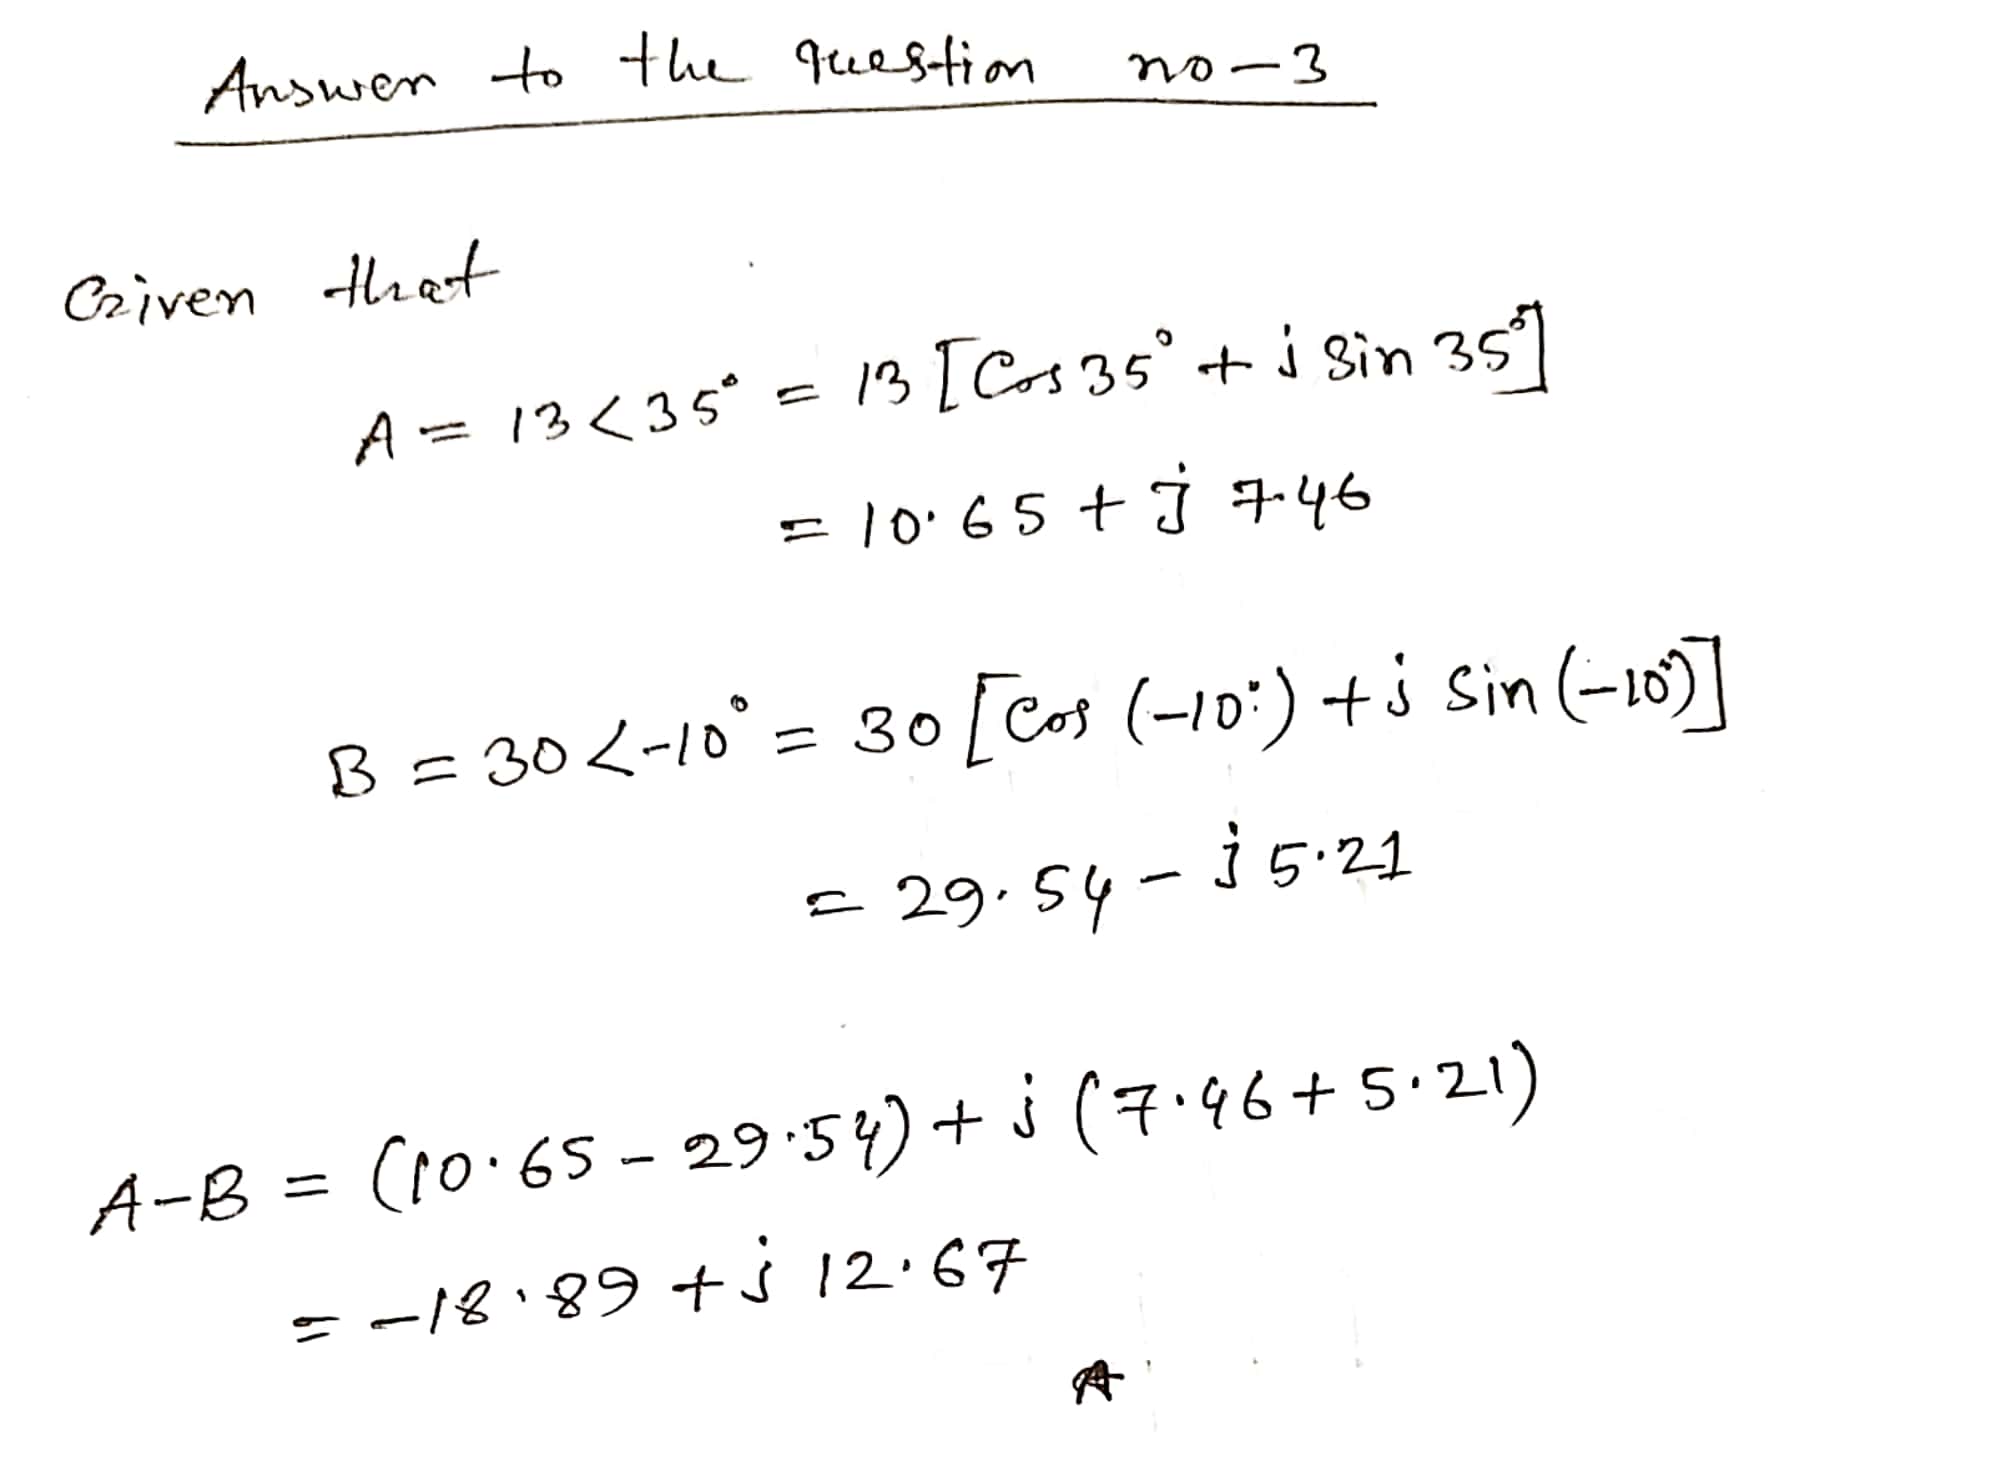 Answer to the question no-3
Given that
A = 13<35° = 13 [Cos 35° + j Sin 35°]
= 10.65 + j 7.46
B = 30<-10° = 30 [Cos (-10°) + j Sin (-10°)]
= 29.54 - j 5.21
A-B = (10.65 - 29.54) + j (7.46 + 5.21)
= -18.89 + j 12.67
A